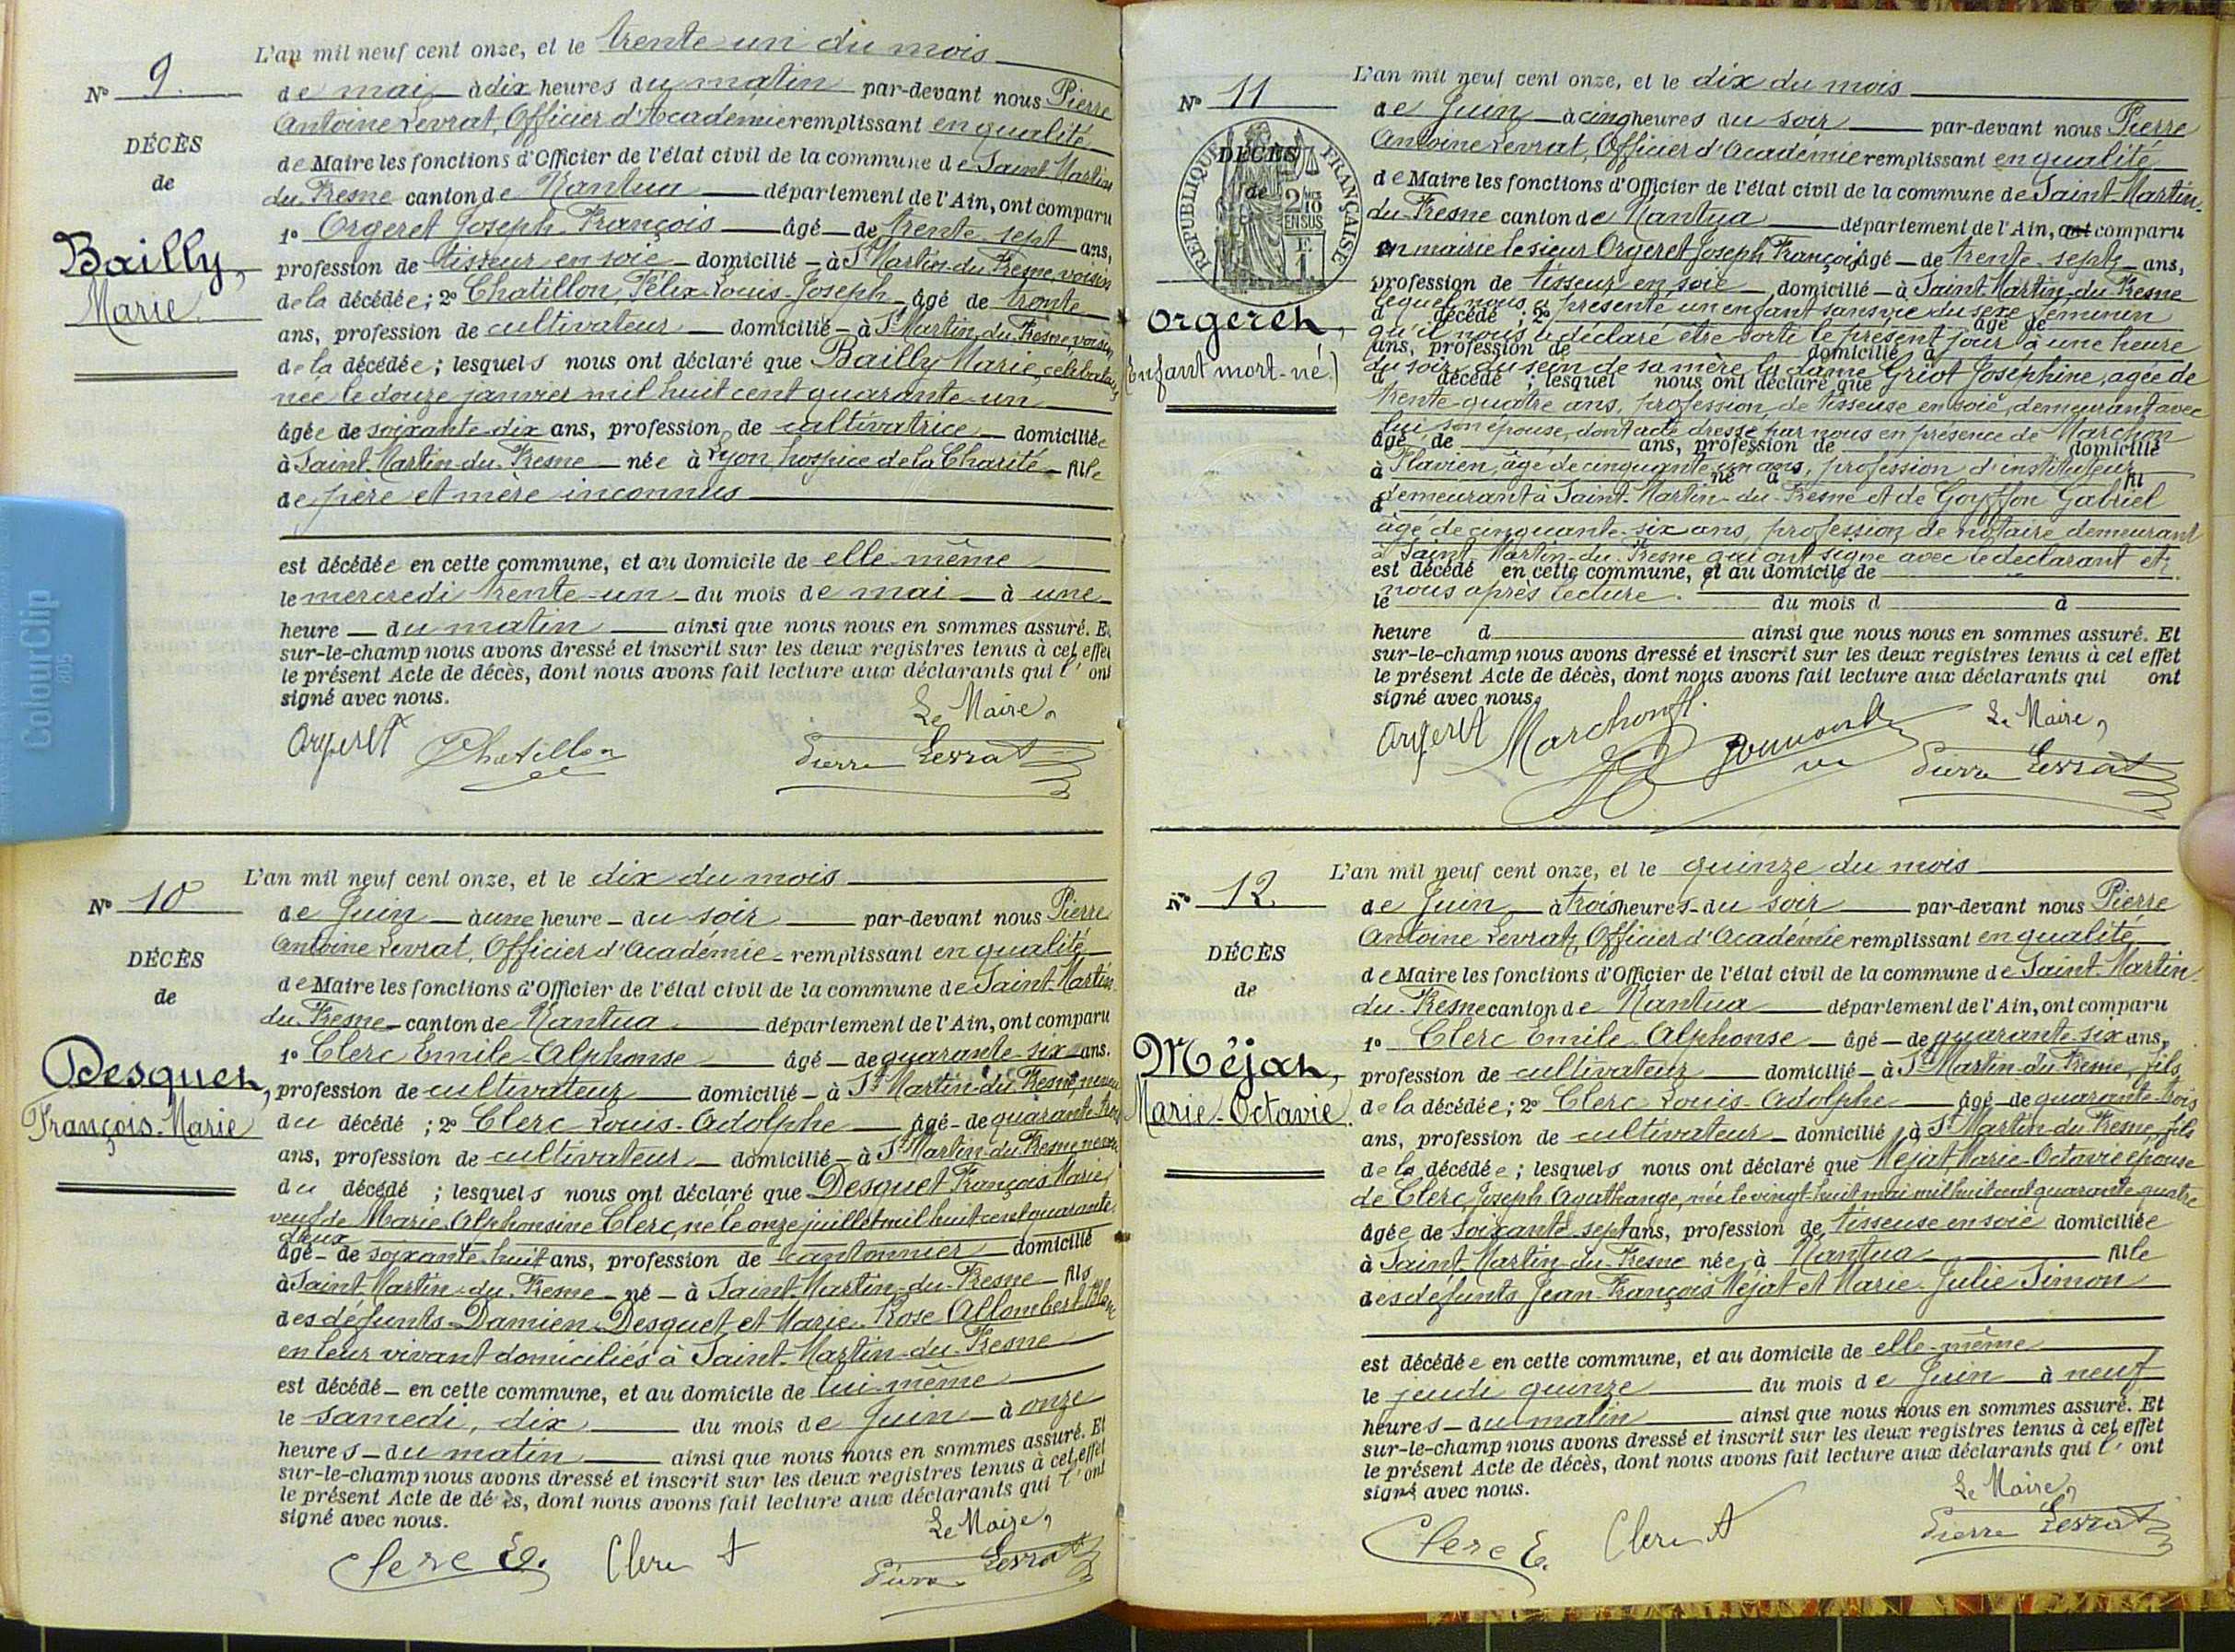 L'an mil neuf cent onze, et le trente-un du mois
N° 9.
de mai à dix heures du matin par-devant nous Pierre
Antoine Levrat, Officier d'Académie remplissant en qualité
DÉCÈS
de Maire les fonctions d'Officier de l'état civil de la commune de Saint-Martin
de
du-Fresne canton de Nantua département de l'Ain, ont comparu
1° Orgeret Joseph-François âgé de trente-sept ans,
Bailly,
profession de tisseur en soie domicilié à St Martin-du-Fresne, voisin
Marie.
de la décédée; 2° Chatillon, Félix-Louis-Joseph âgé de trente
ans, profession de cultivateur domicilié à St Martin-du-Fresne, voisin
de la décédée; lesquels nous ont déclaré que Bailly Marie, célibataire
née le douze janvier mil huit cent quarante-un
âgée de soixante-dix ans, profession de cultivatrice domiciliée
à Saint-Martin-du-Fresne née à Lyon, hospice de la Charité fille
de père et mère inconnus
est décédée en cette commune, et au domicile de elle-même
le mercredi trente-un du mois de mai à une
heure du matin ainsi que nous nous en sommes assuré. Et
sur-le-champ nous avons dressé et inscrit sur les deux registres tenus à cet effet
le présent Acte de décès, dont nous avons fait lecture aux déclarants qui l'ont
signé avec nous.
Le Maire,
Orgeret Chatillon Pierre Levrat
L'an mil neuf cent onze, et le dix du mois
N° 10
de Juin à une heure du soir par-devant nous Pierre
Antoine Levrat, Officier d'Académie remplissant en qualité
DÉCÈS
de Maire les fonctions d'Officier de l'état civil de la commune de Saint-Martin
de
du-Fresne canton de Nantua département de l'Ain, ont comparu
1° Clerc Emile-Alphonse âgé de quarante-six ans.
Desquet,
profession de cultivateur domicilié à St Martin-du-Fresne, neveu
François-Marie
du décédé ; 2° Clerc Louis-Adolphe âgé de quarante-trois
ans, profession de cultivateur domicilié à St Martin-du-Fresne neveu
du décédé ; lesquels nous ont déclaré que Desquet François Marie,
veuf de Marie-Alphonsine Clerc, né le onze juillet mil huit cent quarante-
deux
âgé de soixante-huit ans, profession de cantonnier domicilié
à Saint-Martin-du-Fresne né à Saint-Martin-du-Fresne fils
des défunts Damien Desquet et Marie-Rose Allombert-Blanc
en leur vivant domiciliés à Saint-Martin-du-Fresne
est décédé en cette commune, et au domicile de lui-même
le samedi, dix du mois de Juin à onze
heures du matin ainsi que nous nous en sommes assuré. Et
sur-le-champ nous avons dressé et inscrit sur les deux registres tenus à cet effet
le présent Acte de dé ès, dont nous avons fait lecture aux déclarants qui l'ont
signé avec nous.
Le Maire,
Clerc E. Clerc A Pierre Levrat
L'an mil neuf cent onze, et le dix du mois
N° 11
de Juin à cinq heures du soir par-devant nous Pierre
Antoine Levrat, Officier d'Académie remplissant en qualité
DÉCÈS
de
RÉPUBLIQUE FRANÇAISE
2/10 EN SUS
de Maire les fonctions d'Officier de l'état civil de la commune de Saint-Martin-
du-Fresne canton de Nantua département de l'Ain, ont comparu
en mairie le sieur Orgeret Joseph François âgé de trente-sept ans,
profession de tisseur en soie domicilié à Saint-Martin-du-Fresne
Orgeret,
(Enfant mort-né)
lequel nous a présenté un enfant sans vie du sexe féminin
d décédé ; 2° âgé de
qu'il nous a déclaré être sorti le présent jour à une heure
ans, profession de domicilié à
du soir du sein de sa mère la dame Griot Joséphine, âgée de
d décédé ; lesquel nous ont déclaré que
trente-quatre ans, profession de tisseuse en soie, demeurant avec
lui son épouse, dont acte dressé par nous en présence de Marchon
âgé de ans, profession de domicilié
Flavien, âgé de cinquante-un ans, profession d'instituteur
à né à fil
demeurant à Saint-Martin-du-Fresne et de Goyffon Gabriel
d
âgé de cinquante-six ans, profession de notaire demeurant
à Saint-Martin-du-Fresne qui ont signé avec le déclarant et
est décédé en cette commune, et au domicile de
nous après lecture.
le du mois d à
heure d ainsi que nous nous en sommes assuré. Et
sur-le-champ nous avons dressé et inscrit sur les deux registres tenus à cet effet
le présent Acte de décès, dont nous avons fait lecture aux déclarants qui ont
signé avec nous.
Le Maire,
Orgeret Marchon fl. Pierre Levrat
L'an mil neuf cent onze, et le quinze du mois
N° 12.
de Juin à trois heures du soir par-devant nous Pierre
Antoine Levrat, Officier d'Académie remplissant en qualité
DÉCÈS
de Maire les fonctions d'Officier de l'état civil de la commune de Saint-Martin-
de
du-Fresne canton de Nantua département de l'Ain, ont comparu
1° Clerc Emile-Alphonse âgé de quarante-six ans,
Méjat,
profession de cultivateur domicilié à St Martin-du-Fresne, fils
Marie-Octavie.
de la décédée; 2° Clerc Louis-Adolphe âgé de quarante-trois
ans, profession de cultivateur domicilié à St Martin-du-Fresne, fils
de la décédée; lesquels nous ont déclaré que Méjat, Marie-Octavie épouse
de Clerc, Joseph Agathange, née le vingt-huit mai mil huit cent quarante-quatre
âgée de soixante-sept ans, profession de tisseuse en soie domiciliée
à Saint-Martin-du-Fresne née à Nantua fille
des défunts Jean-François Méjat et Marie-Julie Simon
est décédée en cette commune, et au domicile de elle-même
le jeudi quinze du mois de Juin à neuf
heures du matin ainsi que nous nous en sommes assuré. Et
sur-le-champ nous avons dressé et inscrit sur les deux registres tenus à cet effet
le présent Acte de décès, dont nous avons fait lecture aux déclarants qui l'ont
signé avec nous.
Le Maire,
Clerc E. Clerc A Pierre Levrat
ColourClip
805